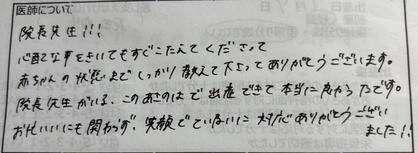 医師について
院長先生!!!
心配な事をきいてもすぐこたえてくださって
赤ちゃんの状態までしっかり教えて下さってありがとうございます。
院長先生がいる、このあきのはで出産できて本当に良かったです。
お忙しいにも関わらず、笑顔でていねいに対応ありがとうござい
ました!!